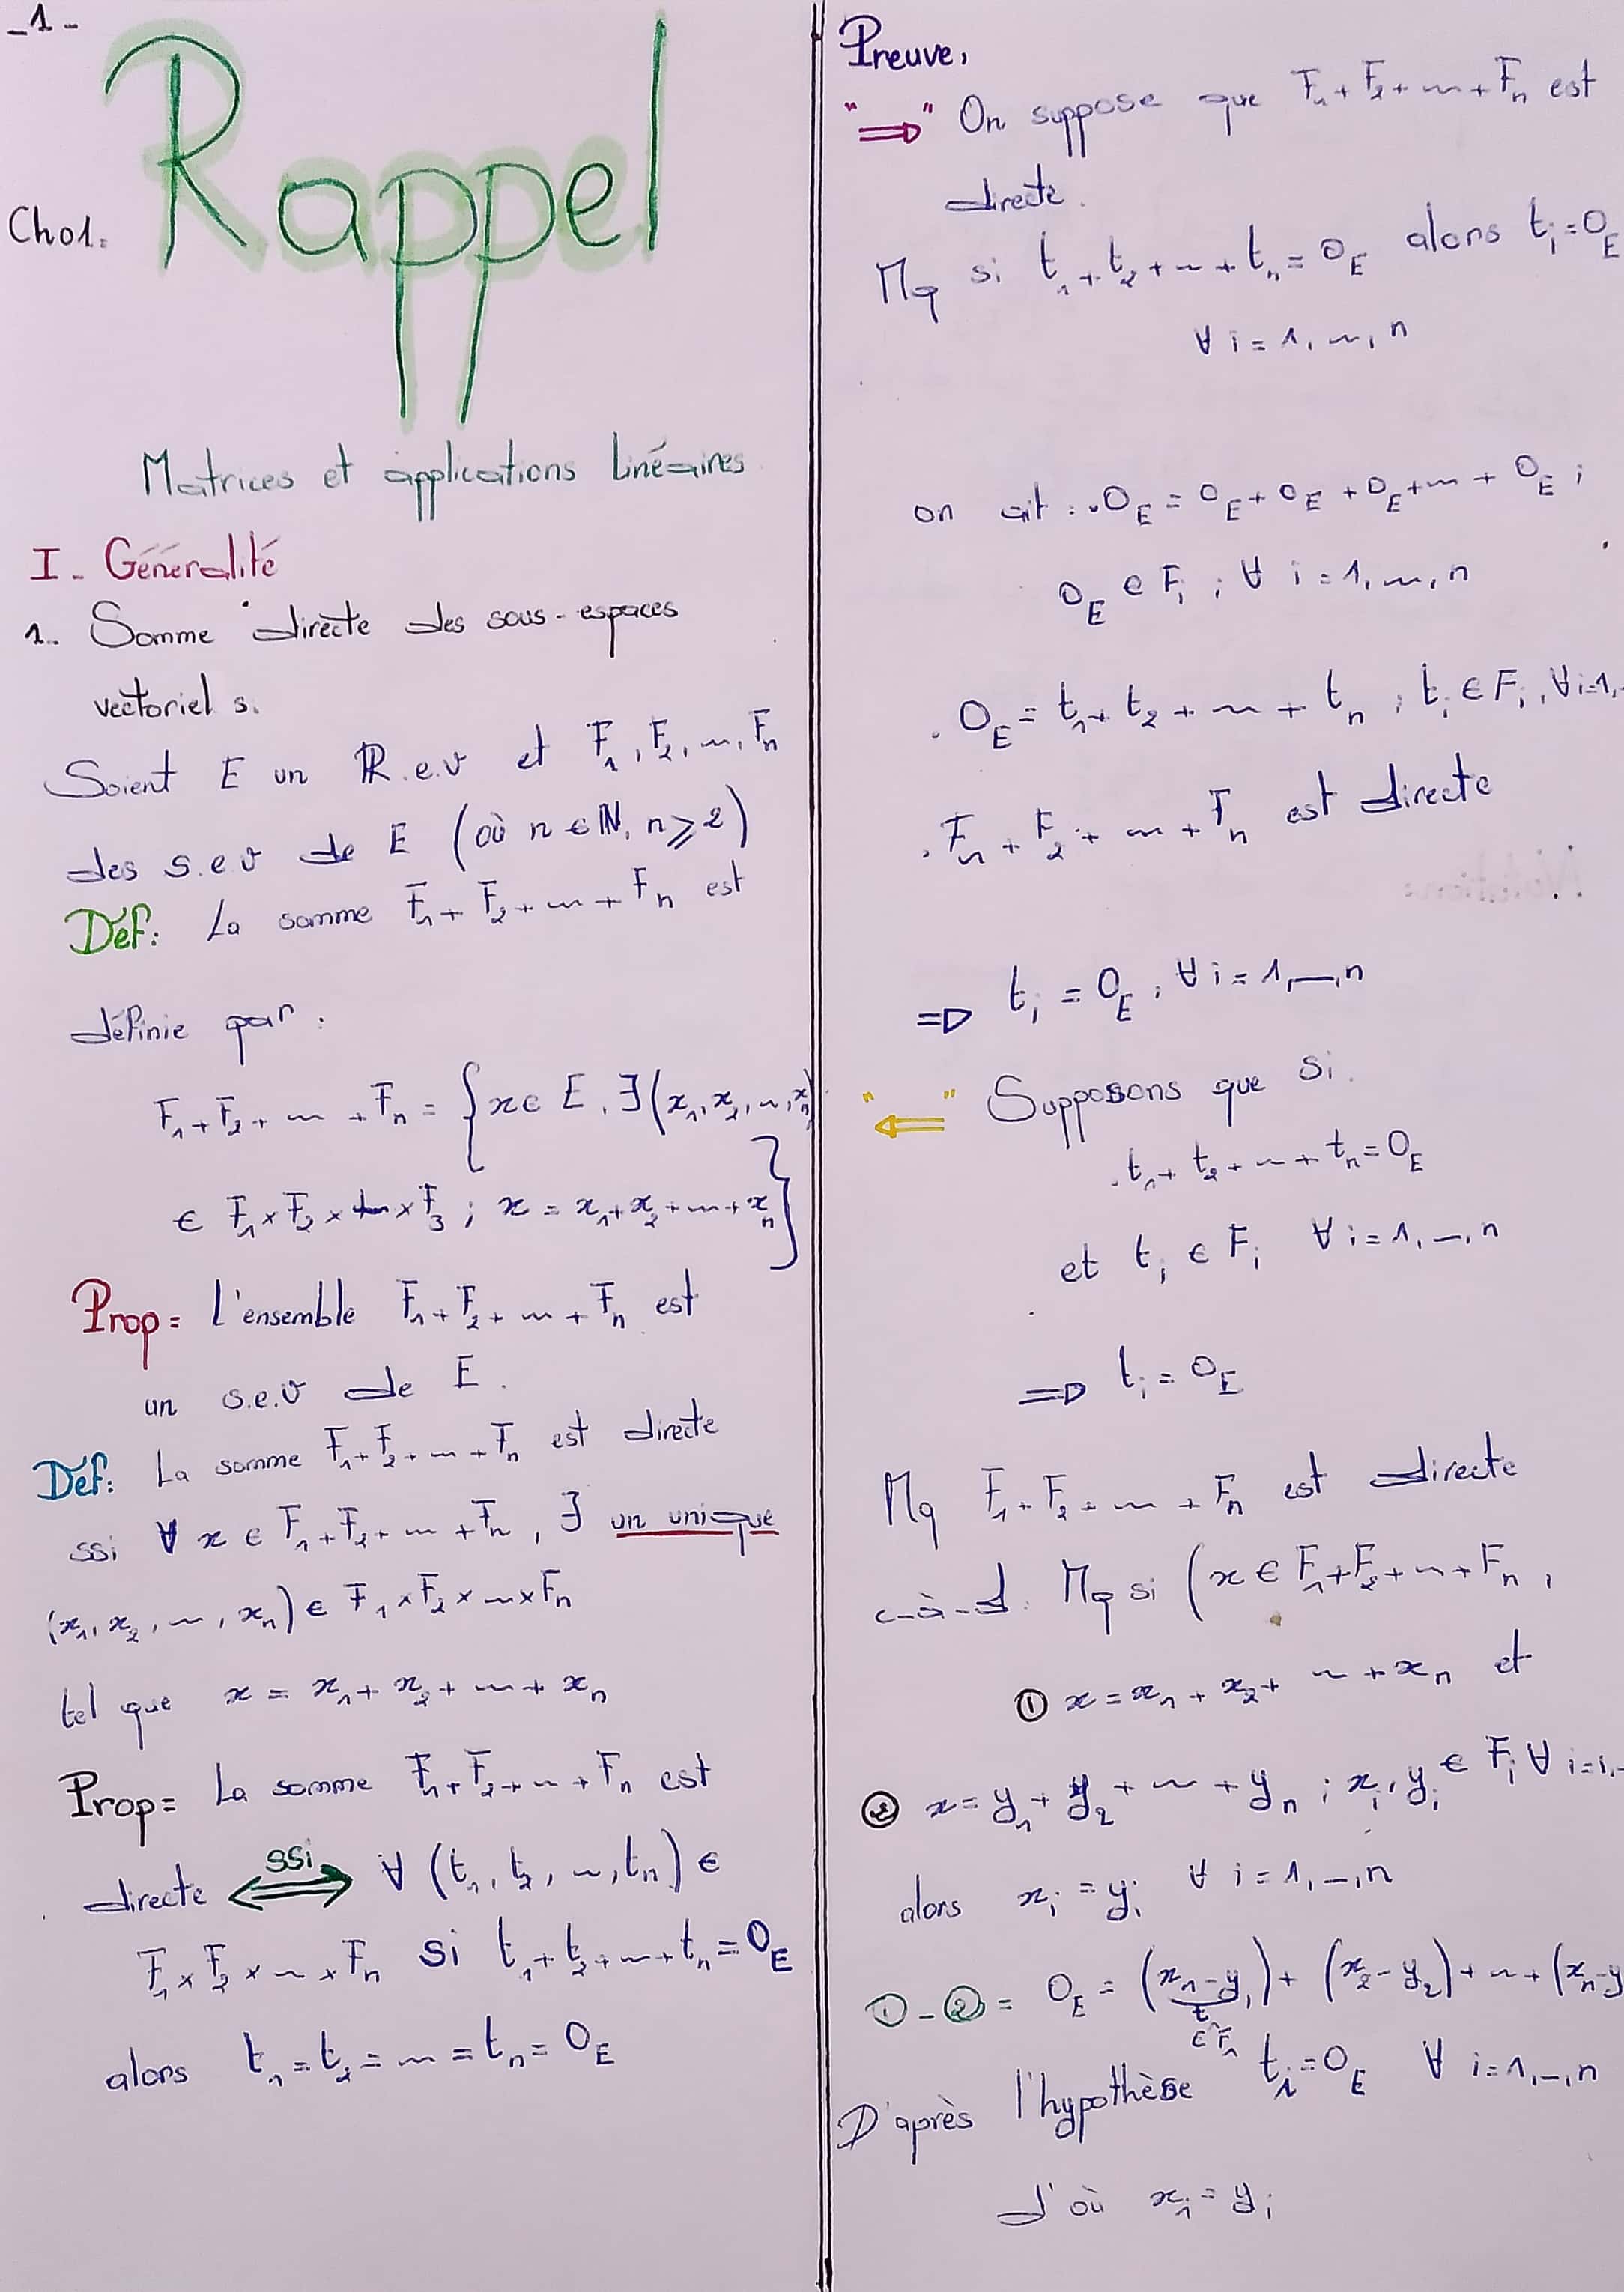 -1-
Ch01:
Rappel
Matrices et applications linéaires
I- Généralité
1- Somme directe des sous-espaces
vectoriel s.
Soient E un ℝ.e.v et F₁, F₂, ..., Fₙ
des s.e.v de E (où n ∈ ℕ, n ⩾ 2)
Déf: La somme F₁ + F₂ + ... + Fₙ est
définie par :
F₁ + F₂ + ... + Fₙ = { x ∈ E, ∃ (x₁, x₂, ..., xₙ)
∈ F₁ × F₂ × ... × F₃ ; x = x₁ + x₂ + ... + xₙ }
Prop= L'ensemble F₁ + F₂ + ... + Fₙ est
un s.e.v de E.
Déf: La somme F₁ + F₂ + ... + Fₙ est directe
ssi ∀ x ∈ F₁ + F₂ + ... + Fₙ, ∃ un unique
(x₁, x₂, ..., xₙ) ∈ F₁ × F₂ × ... × Fₙ
tel que x = x₁ + x₂ + ... + xₙ
Prop= La somme F₁ + F₂ + ... + Fₙ est
directe ⟺ ssi ∀ (t₁, t₂, ..., tₙ) ∈
F₁ × F₂ × ... × Fₙ si t₁ + t₂ + ... + tₙ = 0_E
alors t₁ = t₂ = ... = tₙ = 0_E
Preuve,
"⇒" On suppose que F₁ + F₂ + ... + Fₙ est
directe.
Mq si t₁ + t₂ + ... + tₙ = 0_E alors tᵢ = 0_E
∀ i = 1, ..., n
on ait : . 0_E = 0_E + 0_E + 0_E + ... + 0_E ;
0_E ∈ Fᵢ ; ∀ i = 1, ..., n
. 0_E = t₁ + t₂ + ... + tₙ ; tᵢ ∈ Fᵢ, ∀ i=1,
. F₁ + F₂ + ... + Fₙ est directe
⇒ tᵢ = 0_E, ∀ i = 1, —, n
"⇐" Supposons que si.
. t₁ + t₂ + ... + tₙ = 0_E
et tᵢ ∈ Fᵢ ∀ i = 1, —, n
⇒ tᵢ = 0_E
Mq F₁ + F₂ + ... + Fₙ est directe
c-à-d. Mq si (x ∈ F₁ + F₂ + ... + Fₙ,
① x = x₁ + x₂ + ... + xₙ et
② x = y₁ + y₂ + ... + yₙ ; xᵢ, yᵢ ∈ Fᵢ ∀ i=1,-
alors xᵢ = yᵢ ∀ i = 1, —, n
① - ② = 0_E = (x₁ - y₁) + (x₂ - y₂) + ... + (xₙ - y
t
∈ F₁
D'après l'hypothèse tᵢ = 0_E ∀ i = 1, —, n
d'où xᵢ = yᵢ